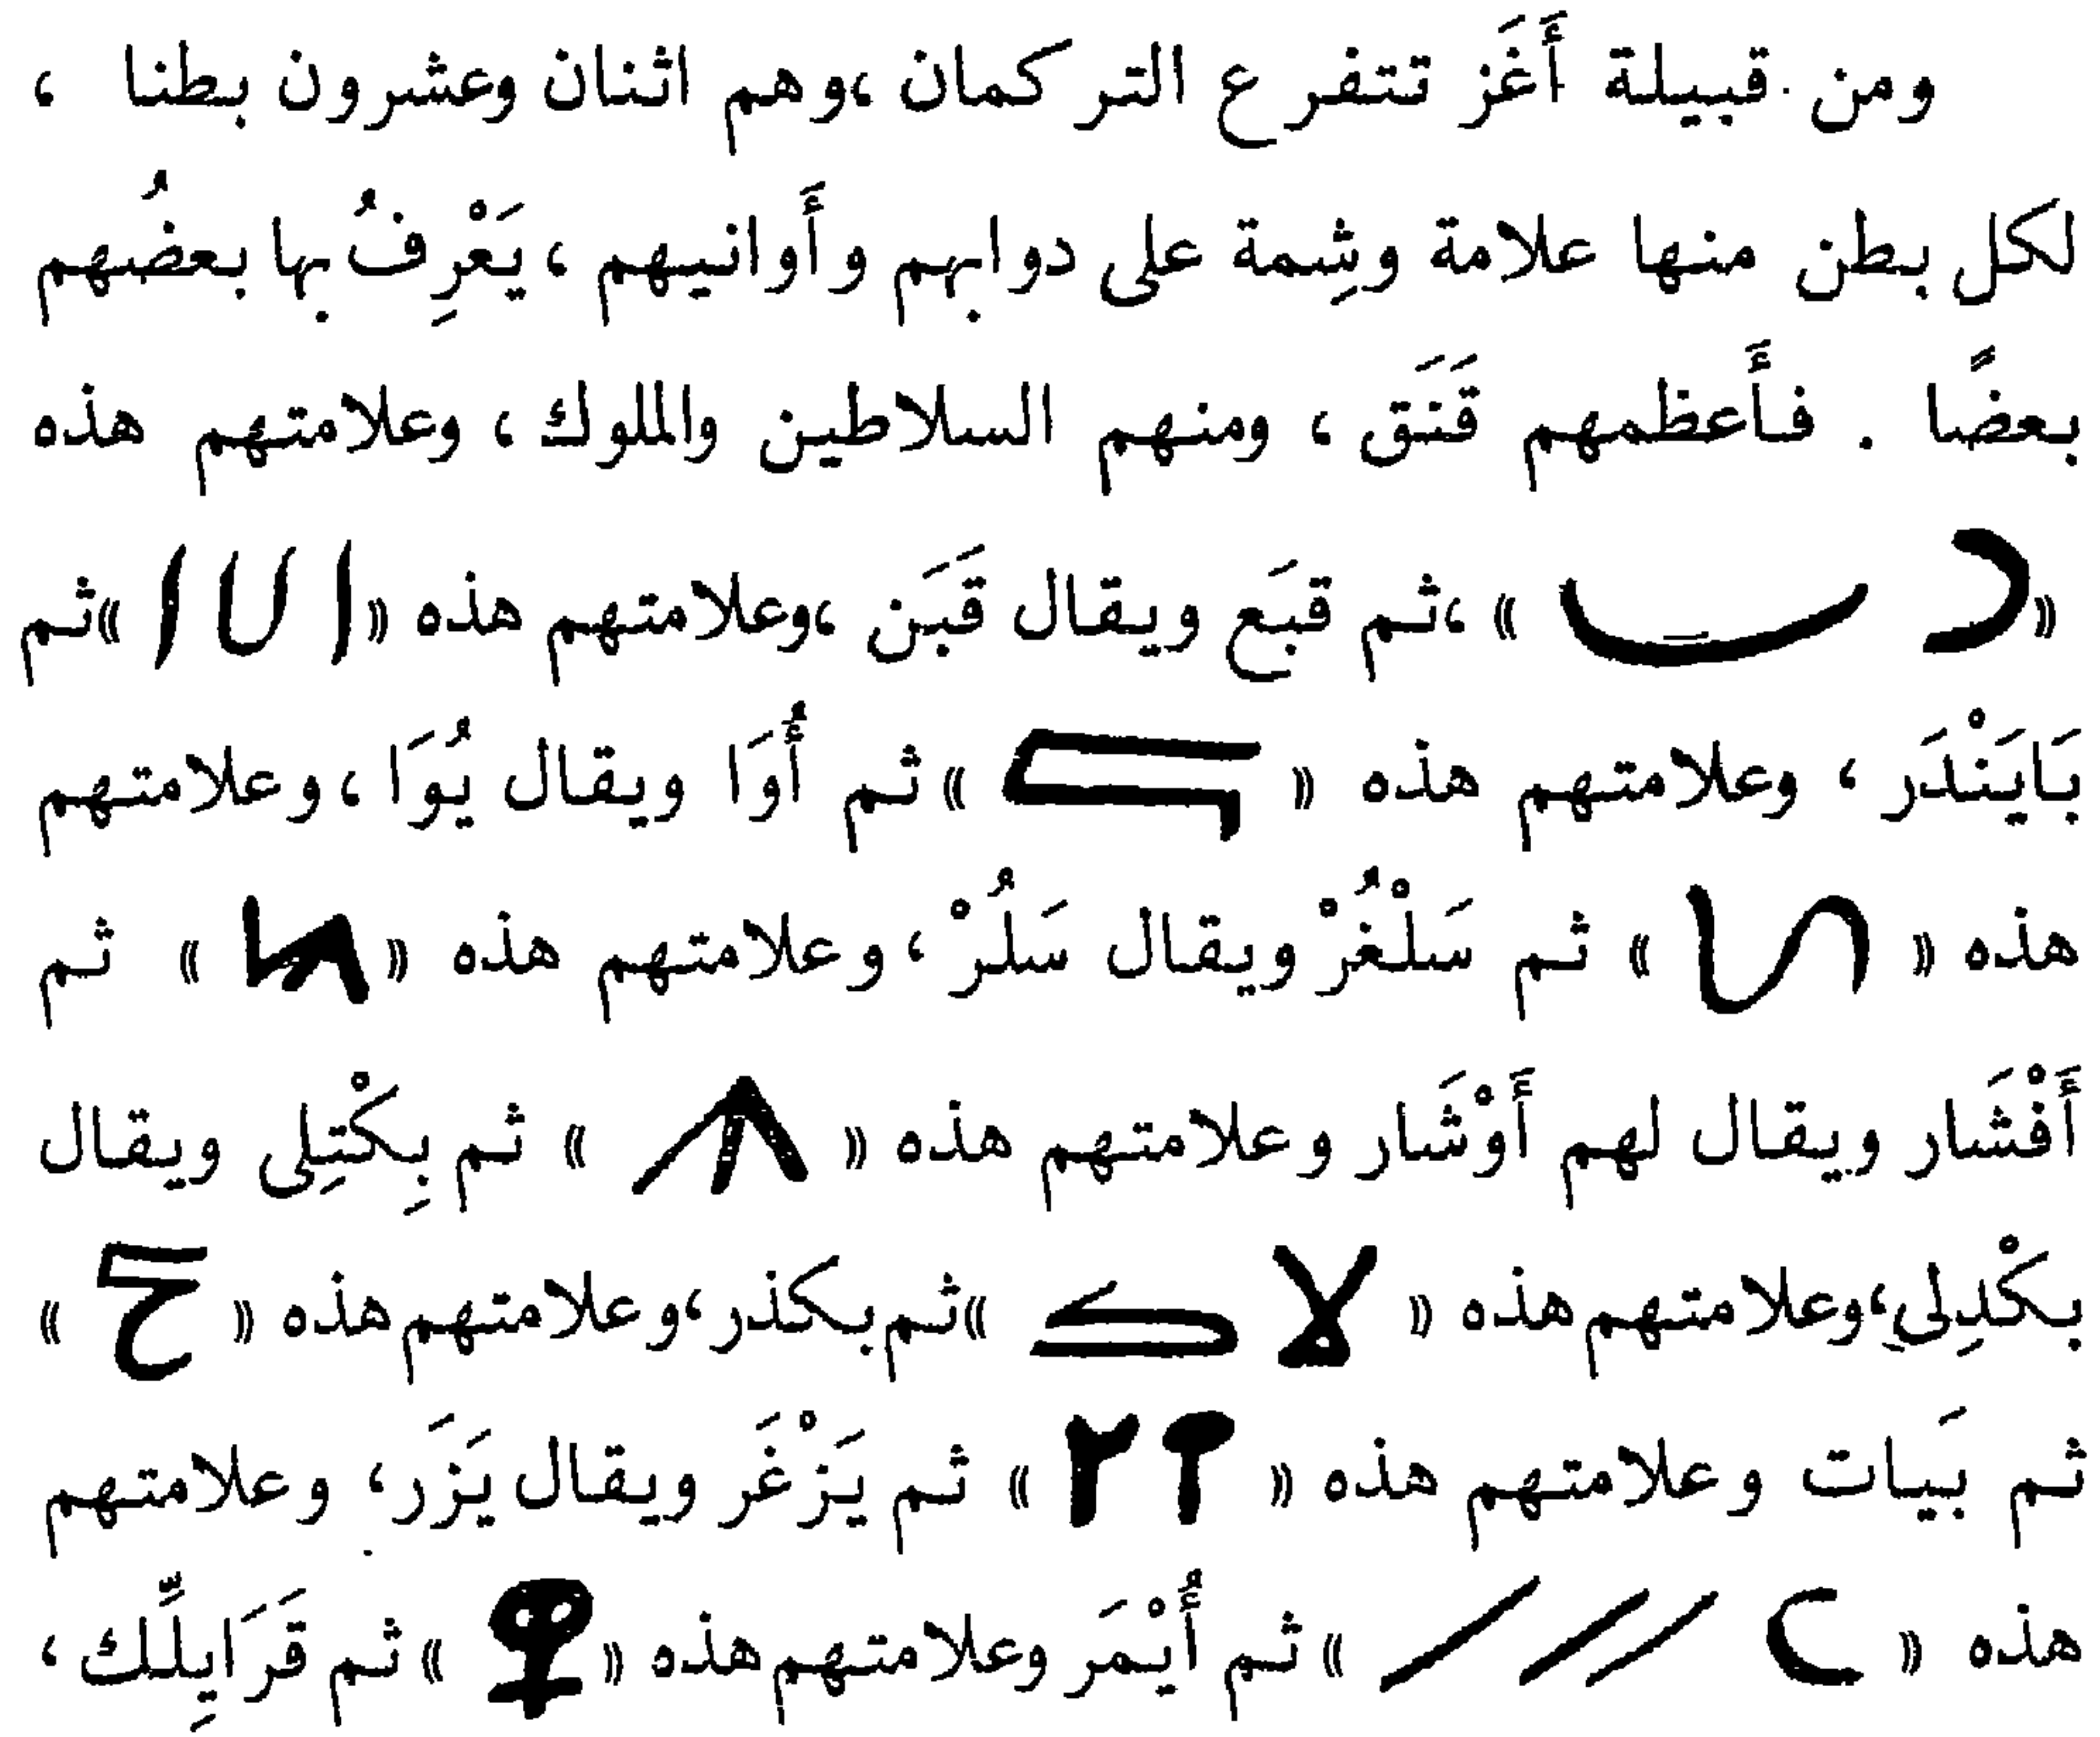 ومن قبيلة أَغَز تتفرع التركمان ،وهم اثنان وعشرون بطنا ،
لكل بطن منها علامة وشِمة على دوابهم وأَوانيهم ، يَعْرِفُ بها بعضُهم
بعضًا . فأَعظمهم قَنَق ، ومنهم السلاطين والملوك ، وعلامتهم هذه
« » ،ثم قبَع ويقال قَبَن ،وعلامتهم هذه « »ثم
بَايَنْدَر ، وعلامتهم هذه « » ثم أُوَا ويقال يُوَا ، وعلامتهم
هذه « » ثم سَلْغُرْ ويقال سَلُرْ ، وعلامتهم هذه « » ثم
أَفْشَار ويقال لهم أَوْشَار وعلامتهم هذه « » ثم بِكْتِلى ويقال
بكْدِلي ،وعلامتهم هذه « »ثم بكذر ،وعلامتهم هذه « »
ثم بَيات وعلامتهم هذه « » ثم يَزْغَر ويقال يَزَر ، وعلامتهم
هذه « » ثم أُيْمَر وعلامتهم هذه « » ثم قَرَايِلَّك ،